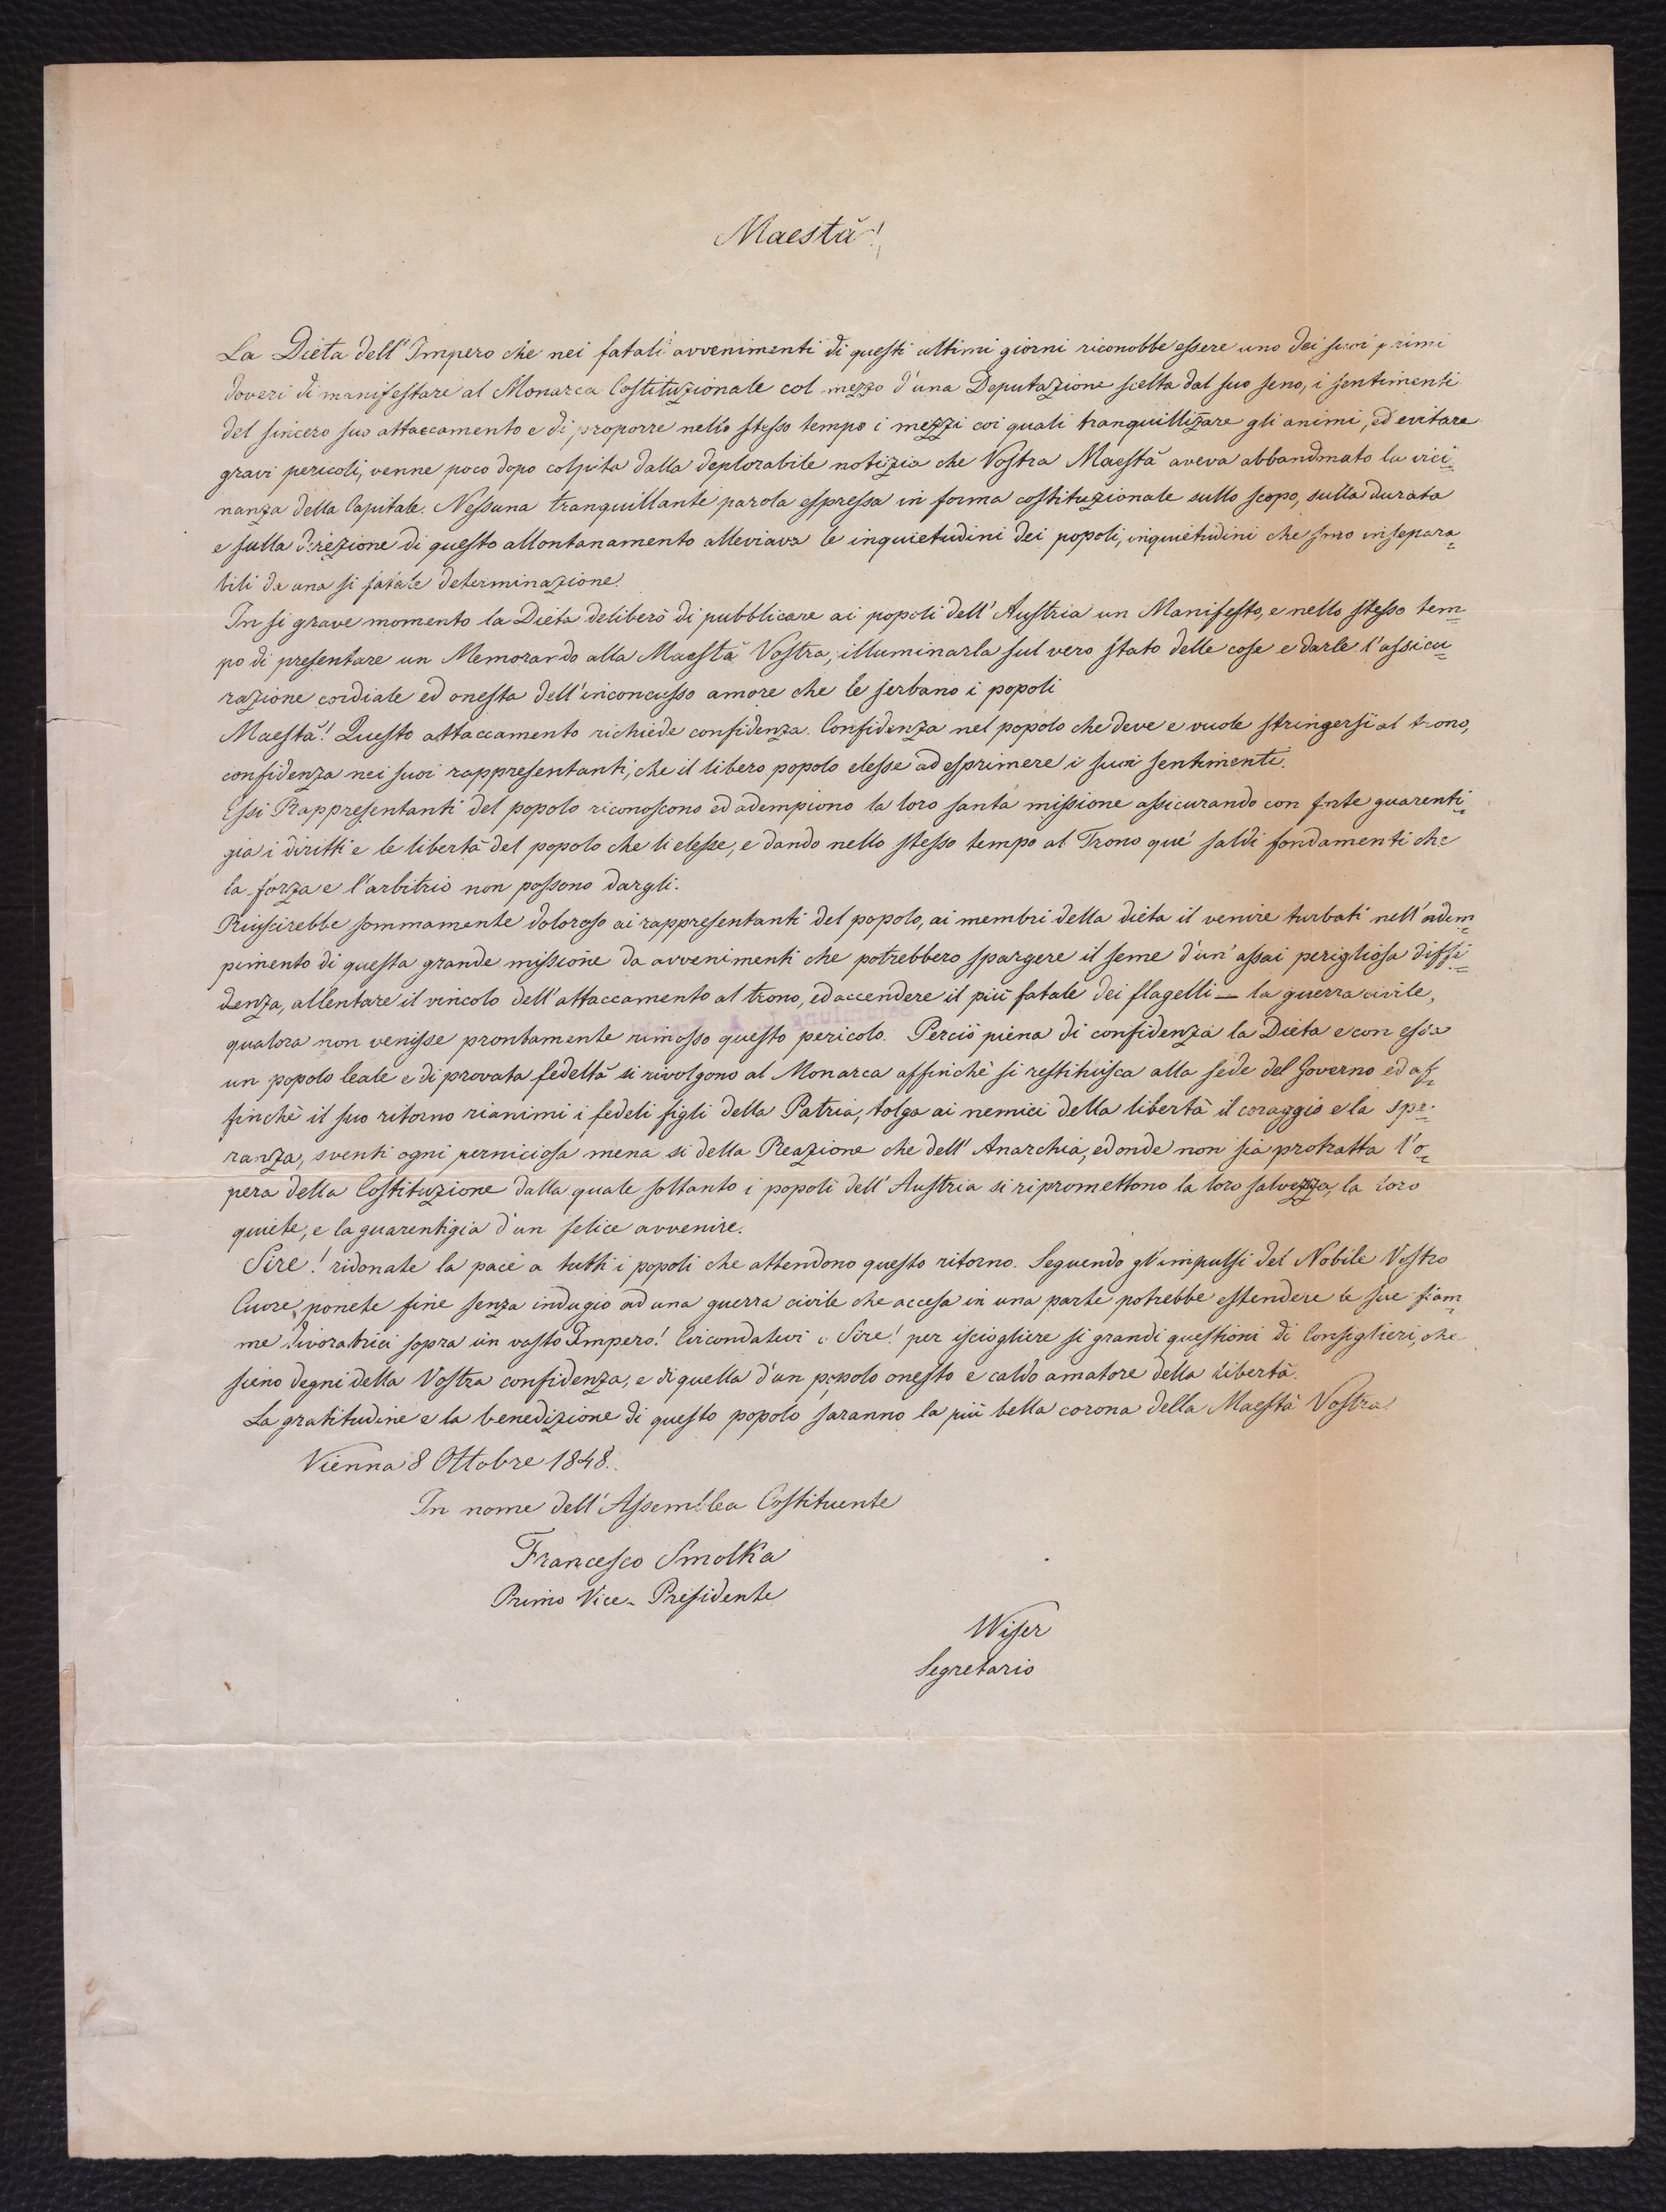 Maestà!
La Dieta dell'Impero che nei fatali avvenimenti di questi ultimi giorni riconobbe essere uno dei suoi primi
doveri di manifestare al Monarca Costituzionale col mezzo d'una Deputazione scelta dal suo seno, i sentimenti
del sincero suo attaccamento e di proporre nello stesso tempo i mezzi coi quali tranquillizare gli animi, ed evitare
gravi pericoli, venne poco dopo colpita dalla deplorabile notizia che Vostra Maestà aveva abbandonato la vici=
nanza della Capitale. Nessuna tranquillante parola espressa in forma costituzionale sullo scopo, sulla durata
e sulla direzione di questo allontanamento alleviava le inquietudini dei popoli, inquietudini che sono insepara=
bili da una si fatale determinazione.
In si grave momento la Dieta deliberò di pubblicare ai popoli dell'Austria un Manifesto, e nello stesso tem=
po di presentare un Memorando alla Maestà Vostra, illuminarla sul vero stato delle cose e darle l'assicu=
razione cordiale ed onesta dell'inconcusso amore che le serbano i popoli
Maestà! Questo attaccamento richiede confidenza. Confidenza nel popolo che deve e vuole stringersi al trono,
confidenza nei suoi rappresentanti, che il libero popolo elesse ad esprimere i suoi sentimenti.
Essi Rappresentanti del popolo riconoscono ed adempiono la loro santa missione assicurando con forte guarenti=
gia i diritti e le libertà del popolo che li elesse, e dando nello stesso tempo al Trono que' saldi fondamenti che
la forza e l'arbitrio non possono dargli.
Riuscirebbe sommamente doloroso ai rappresentanti del popolo, ai membri della dieta il venire turbati nell'adem=
pimento di questa grande missione da avvenimenti che potrebbero spargere il seme d'un'assai perigliosa diffi=
denza, allentare il vincolo dell'attaccamento al trono, ed accendere il più fatale dei flagelli — la guerra civile,
qualora non venisse prontamente rimosso questo pericolo. Perciò piena di confidenza la Dieta e con essa
un popolo leale e di provata fedeltà si rivolgono al Monarca affinchè si restituisca alla sede del Governo ed af=
finchè il suo ritorno rianimi i fedeli figli della Patria, tolga ai nemici della libertà il coraggio e la spe=
ranza, sventi ogni perniciosa mena si della Reazione che dell'Anarchia, ed onde non sia protratta l'o=
pera della Costituzione dalla quale soltanto i popoli dell'Austria si ripromettono la loro salvezza, la loro
quiete, e la guarentigia d'un felice avvenire.
Sire! ridonate la pace a tutti i popoli che attendono questo ritorno. Seguendo gl'impulsi del Nobile Vostro
Cuore, ponete fine senza indugio ad una guerra civile che accesa in una parte potrebbe estendere le sue fiam=
me divoratrici sopra un vasto Impero! Circondatevi o Sire! per isciogliere si grandi questioni di Consiglieri, che
sieno degni della Vostra confidenza, e di quella d'un popolo onesto e caldo amatore della Libertà.
La gratitudine e la benedizione di questo popolo saranno la più bella corona della Maestà Vostra.
Vienna 8 Ottobre 1848.
In nome dell'Assemblea Costituente
Francesco Smolka
Primo Vice-Presidente
Wiser
Segretario